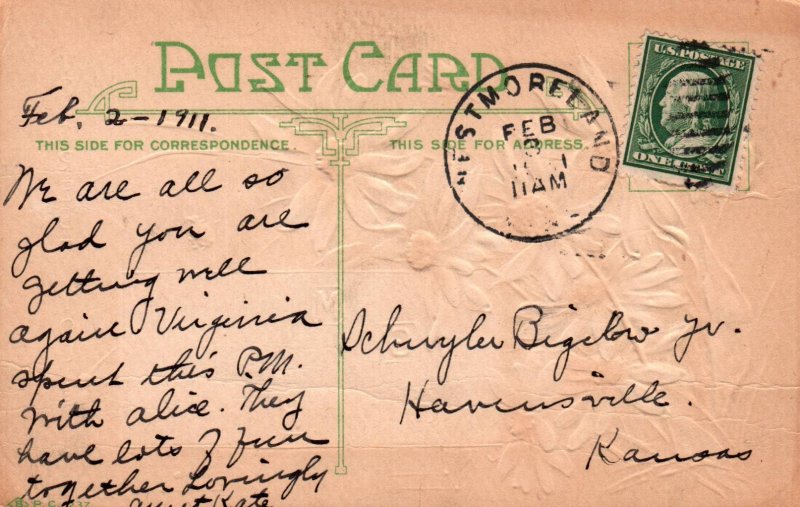 POST CARD
Feb, 2-1911.
THIS SIDE FOR CORRESPONDENCE.
THIS SIDE FOR ADDRESS.
We are all so
glad you are
getting well
again Virginia
spent this P.M.
with alice. They
have lots of fun
together Lovingly
Aunt Kate
WESTMORELAND
FEB
11AM
U.S. POSTAGE
ONE CENT
Schuyler Bigelow Jr.
Havensville.
Kansas